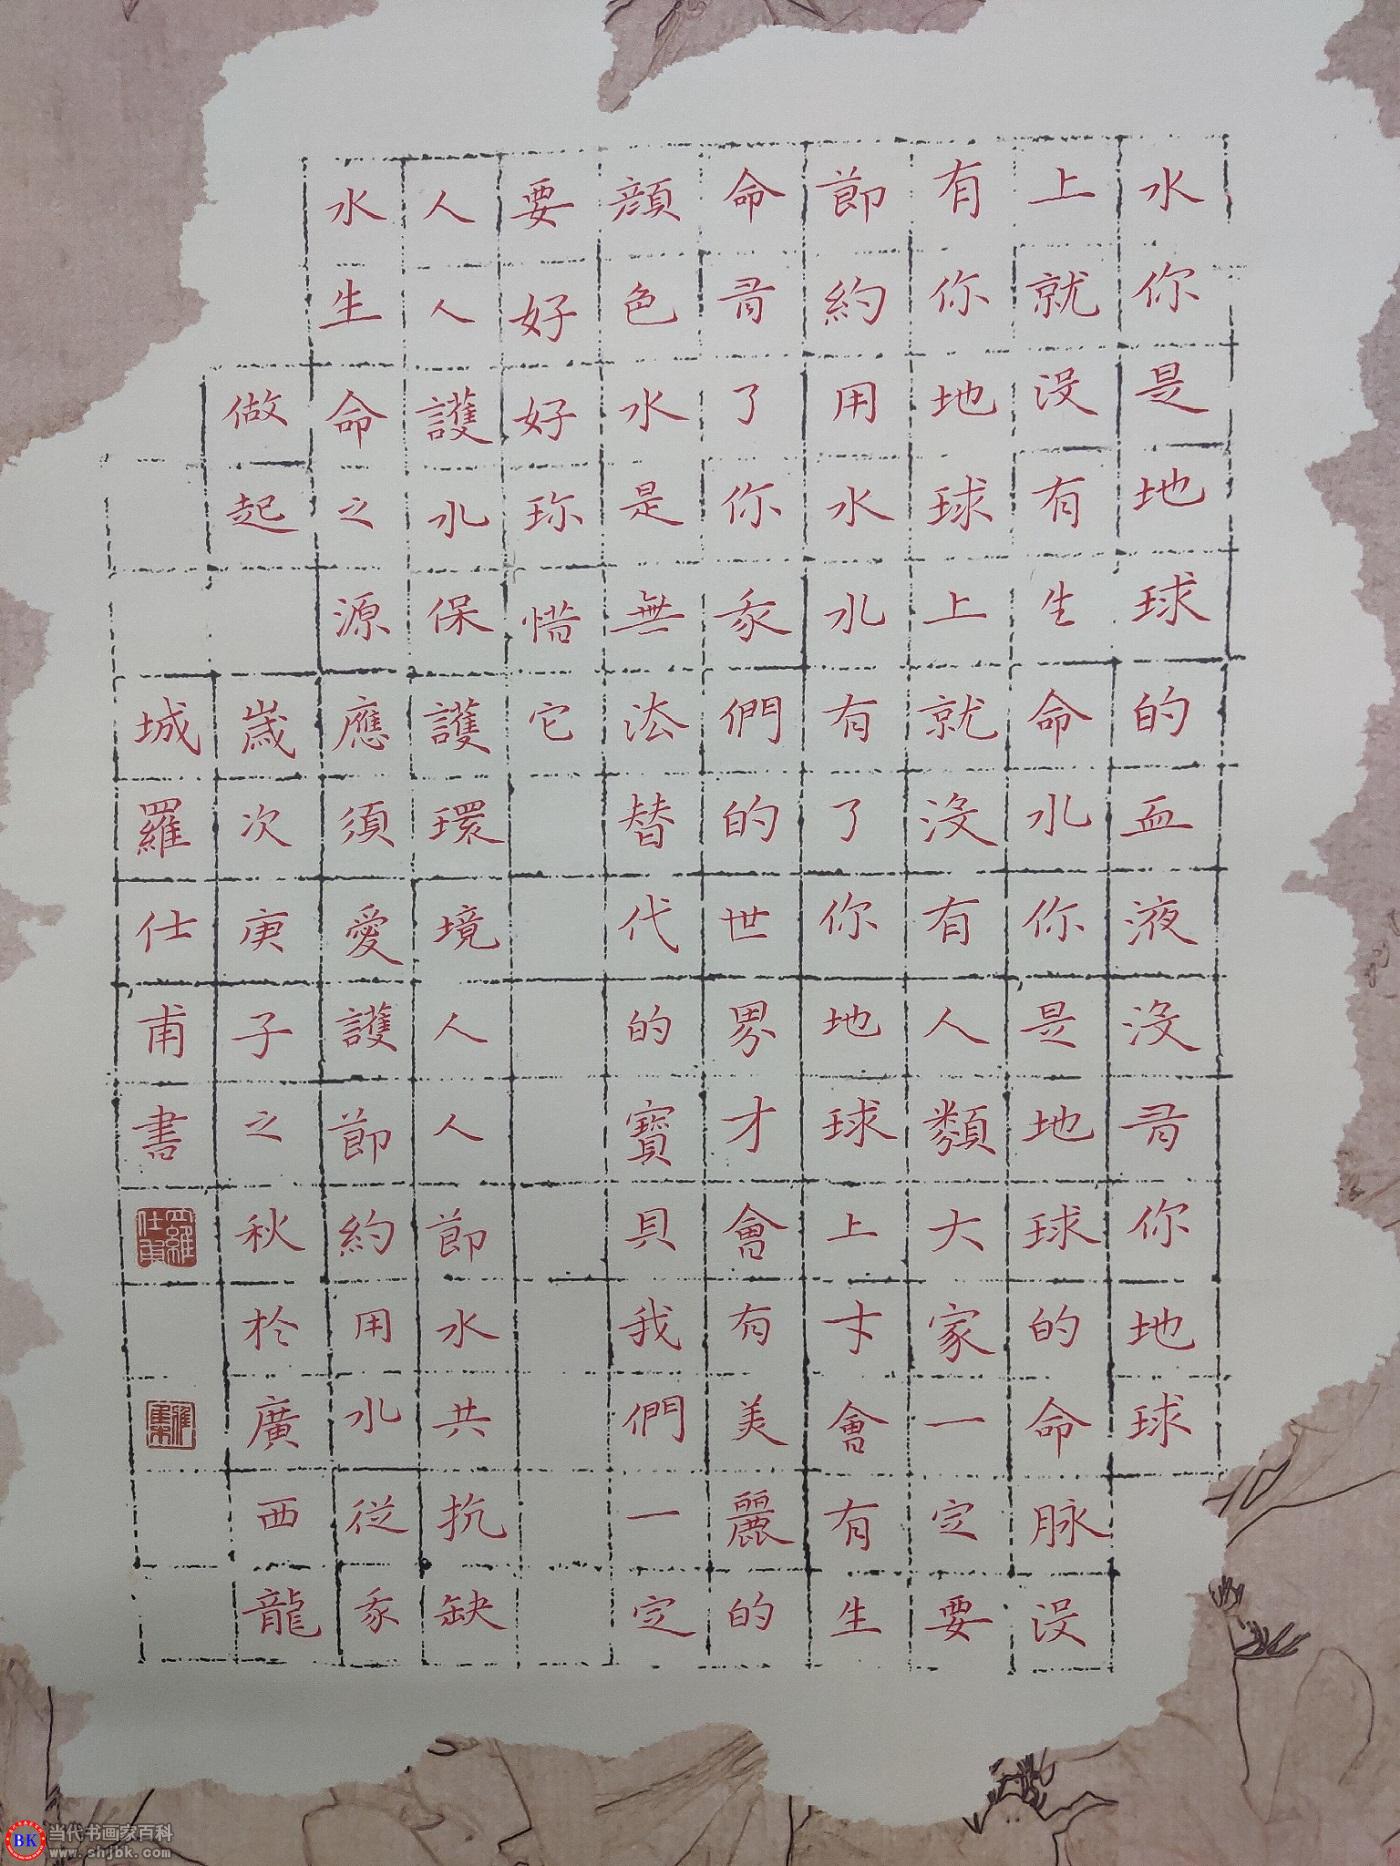 水你是地球的血液沒有你地球
上就沒有生命水你是地球的命脉沒
有你地球上就沒有人類大家一定要
節約用水水有了你地球上才會有生
命有了你我們的世界才會有美麗的
顏色水是無法替代的寶貝我們一定
要好好珍惜它
人人護水保護環境人人節水共抗缺
水生命之源應須愛護節約用水從我
做起 歲次庚子之秋於廣西龍
城羅仕甫書
羅仕甫
BK 当代书画家百科
www.shjbk.com